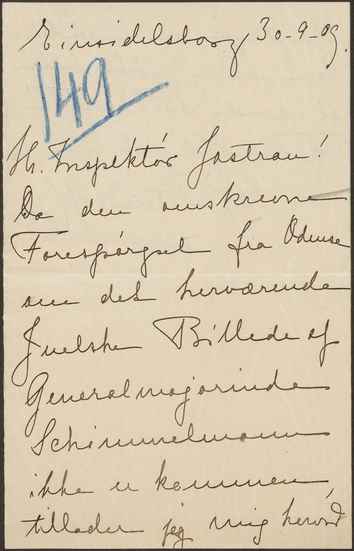 Einsidelsborg 30-9-09.
149
Hr. Inspektör Jastrau!
Da den omskrevne
Forespörgsel fra Odense
om det herværende
Juelske Billede af
Generalmajorinde
Schimmelmann
ikke er kommen,
tillader jeg mig herved